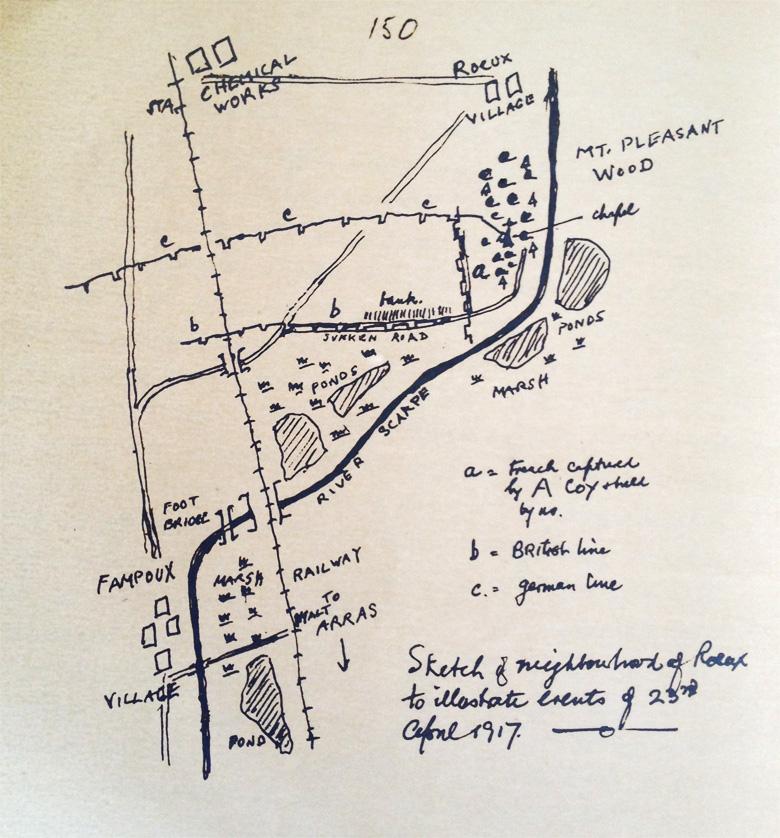 150
CHEMICAL
WORKS
STA.
ROEUX
VILLAGE
MT. PLEASANT
WOOD
chapel
c
c
c
a
b
b
bank.
SUNKEN ROAD
PONDS
PONDS
MARSH
RIVER SCARPE
FOOT
BRIDGE
FAMPOUX
VILLAGE
MARSH
RAILWAY
HALT
TO
ARRAS
POND
a = trench captured
by A Coy & held
by us.
b = British line
c. = german line
Sketch of neighbourhood of Roeux
to illustrate events of 23rd
April 1917.